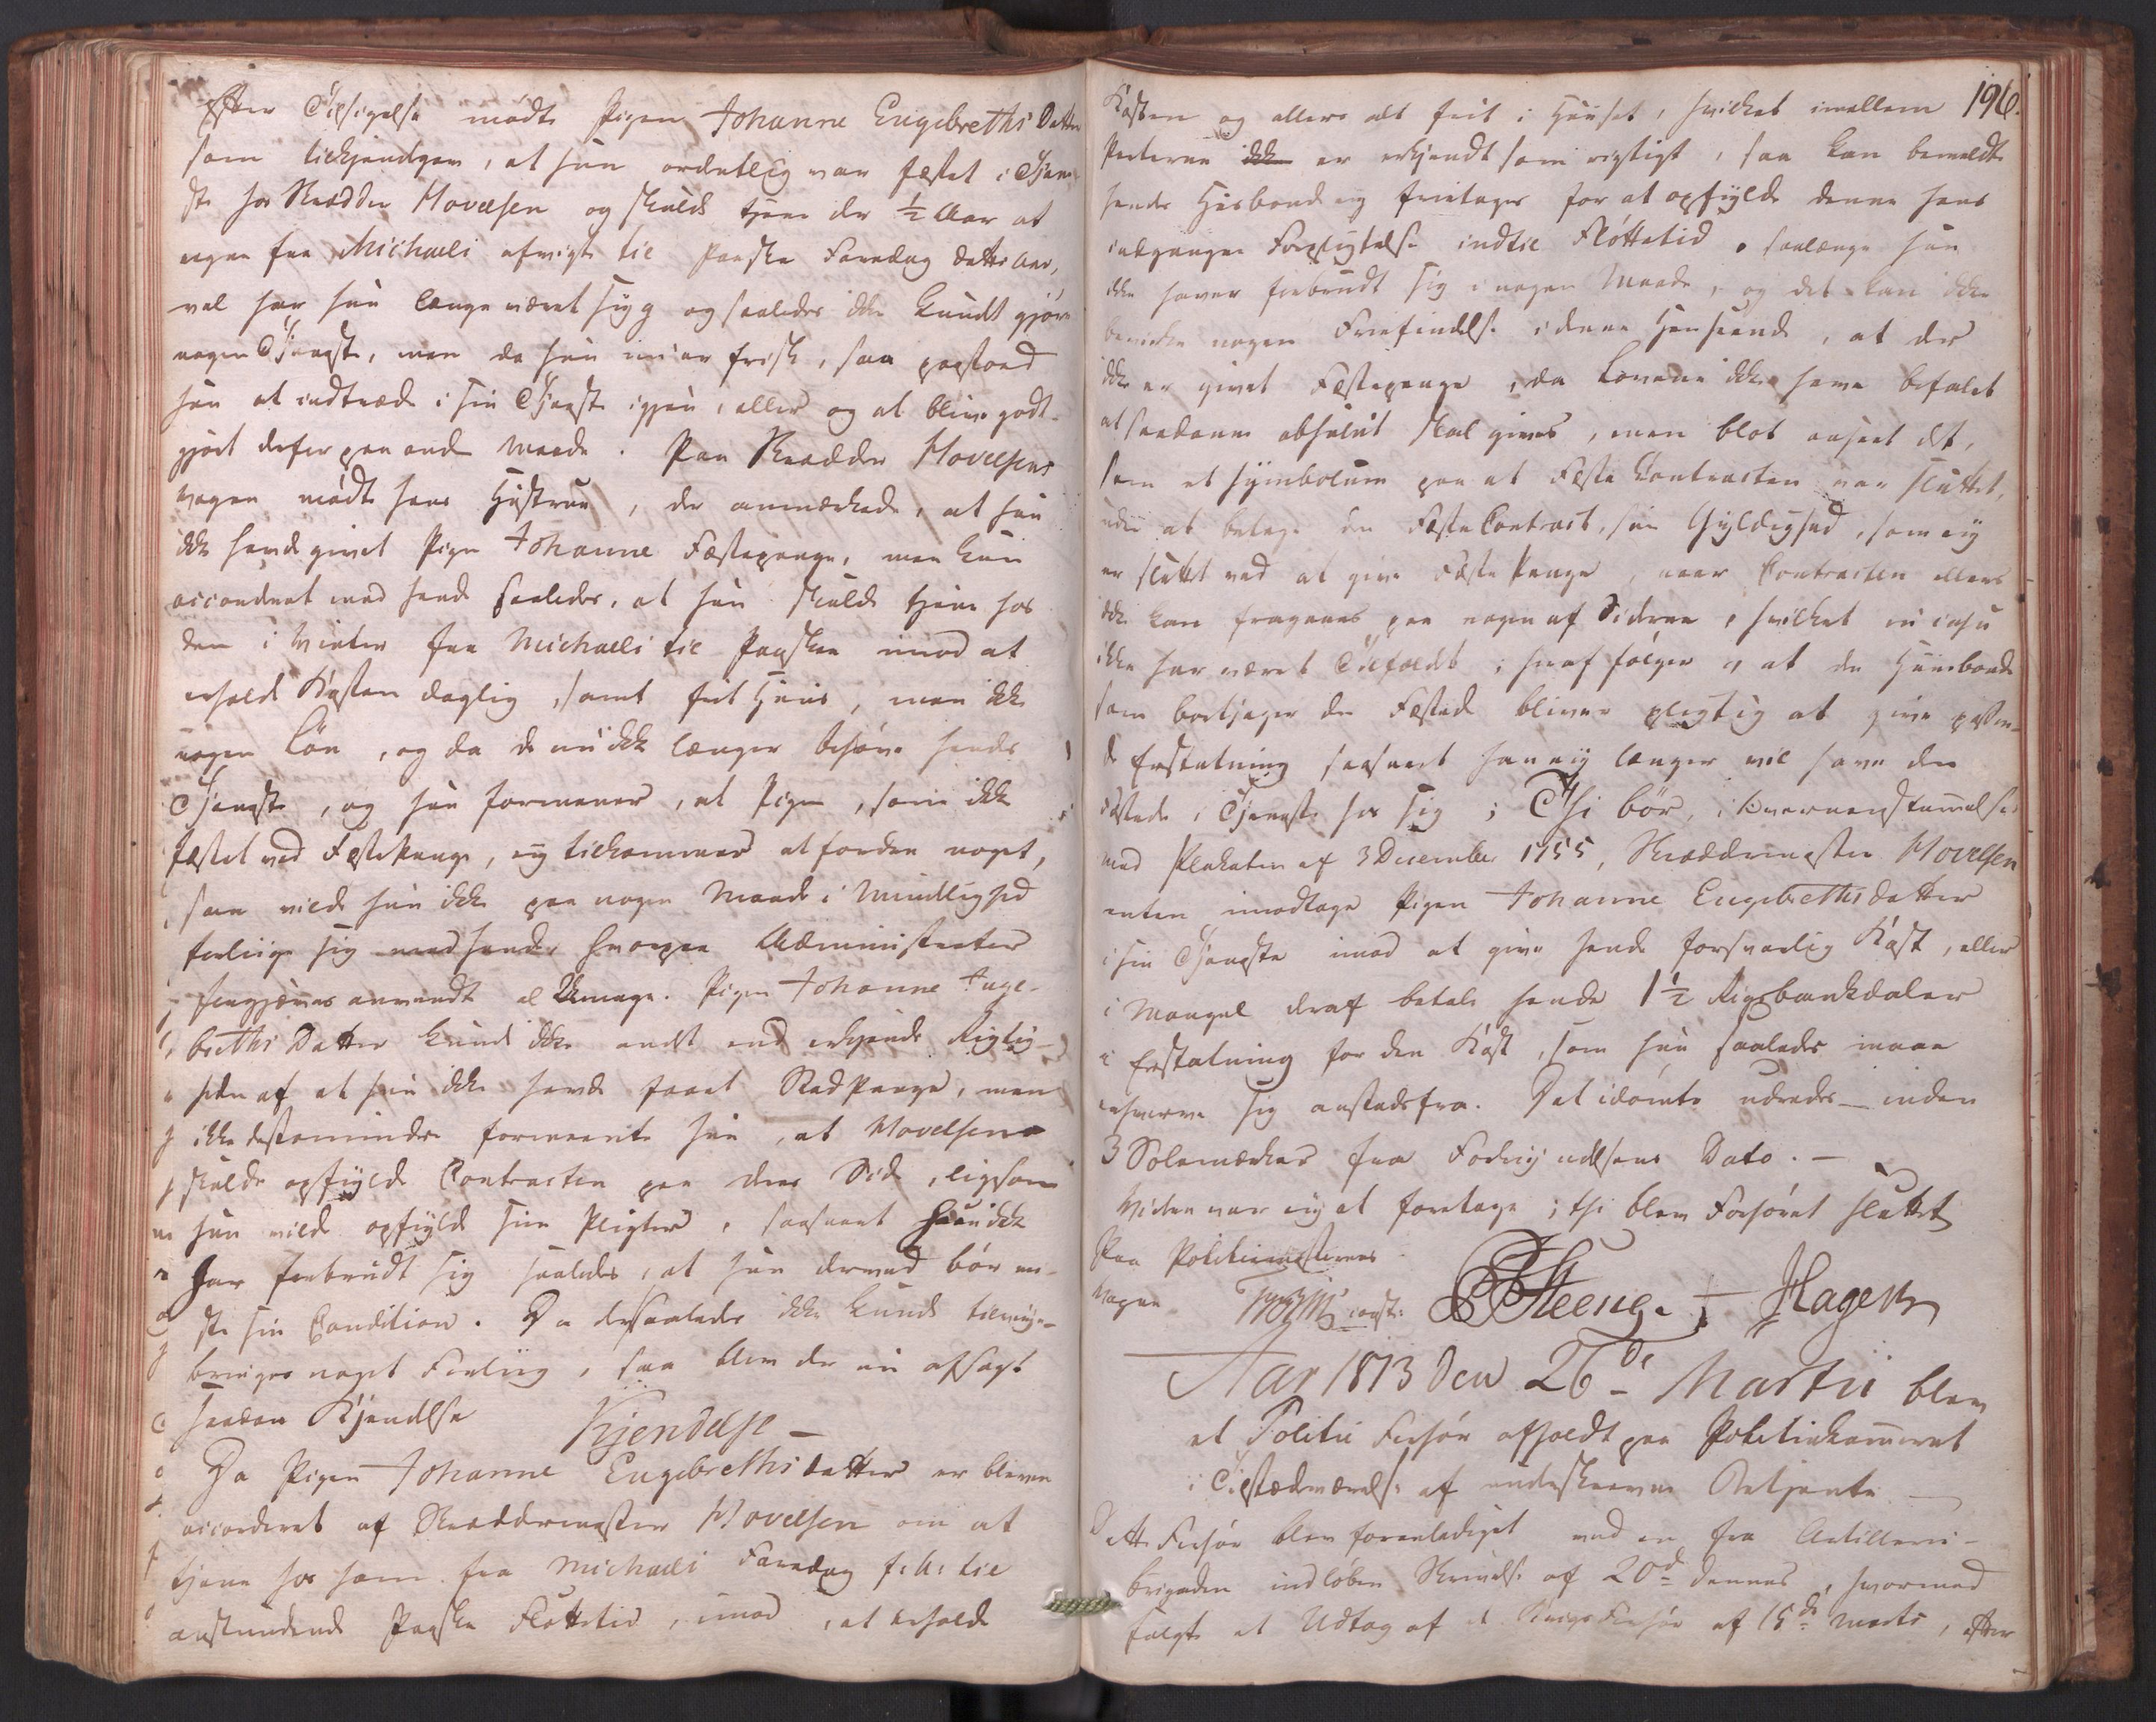 Efter Tilsigelse mødte Pigen Johanne Engebreths Datter
som tilkjendgav, at hun ordentlig var fæstet i Tjene-
ste hos Skrædder Hovelsen og skulde tjene der ½ Aar at
regne fra Michaeli afvigte til Paaske Faredag dette Aar,
vel har hun længe været syg og saaledes ikke kundt gjøre
nogen Tjeneste, men da hun nu er frisk, saa paastod
hun at indtræde i sin Tjeneste igjen, eller og at blive godt-
gjort derfor paa anden Maade. Paa Skrædder Hovelsens
Vegne mødte hans Hustrue, der anmærkede, at hun
ikke havde givet Pigen Johanne Fæstepenge, men kun
accorderet med hende saaledes, at hun skulde tjene hos
dem i Vinter fra Michaeli til Paasken imod at
erholde Kosten daglig, samt frit Huus, men ikke
nogen Løn, og da de nu ikke længer behøve hendes
Tjeneste, og hun formener, at Pigen, som ikke
fæstet ved Fæstepenge, ey tilkommer at fordre noget,
saa vilde hun ikke paa nogen Maade i Mindelighed
forliige sig med hende, hvorpaa Administrator
forgjæves anvendte al Umage. Pigen Johanne Enge-
breths Datter kunde ikke andet end erkjende Rigtig-
heden af at hun ikke havde faaet Stedpenge, men
ikke destomindre formeente hun, at Hovelsen
skulde opfylde Contracten paa deres Side, ligesom
hun vilde opfylde sine Pligter, saasnart hun ikke
har forbrudt sig saaledes, at hun dermed bør mi-
ste sin Condition. Da der saaledes ikke kunde tilveye-
bringes noget Forliig, saa blev der nu afsagt
saadan Kjendelse
Kjendelse
Da Pigen Johanne Engebrethsdatter er bleven
accorderet af Skræddermester Hovelsen om at
tjene hos ham fra Michaeli Faredag f: A: til
anstundende Paaske Fløttetid, imod, at erholde
196.
Kosten og ellers alt frit i Huuset, hvilket imellem
Parterne ikke er erkjendt som rigtigt, saa kan bemeldte
hendes Huusbond ey fritages for at opfylde denne hans
indgangne Forpligtelse indtil Fløttetid, saalænge hun
ikke haver forbrudt sig i nogen Maade, og det kan ikke
bevirke nogen Friefindelse i denne Henseende, at der
ikke er givet Fæstepenge, da Lovene ikke have befalet
at saadanne absolut skal gives, men blot anseet det,
som et Symbolum paa at Fæste Contracten var sluttet,
uden at betage den Fæste Contract, sin Gyldighed, som ey
er sluttet ved at give Fæste Penge, naar Contracten ellers
ikke kan fragaaes paa nogen af Siderne, hvilket in casu
ikke har været Tilfældet; heraf følger og at den Huusbonde
som bortjager den Fæstede bliver pligtig at give passen-
de Erstatning saasnart han ey længer vil have den
Fæstede i Tjeneste hos sig; Thi bør, i Overeensstemmelse
med Plakaten af 3 December 1755, Skræddermester Hovelsen
enten imodtage Pigen Johanne Engebrethsdatter
i sin Tjeneste imod at give hende forsvarlig Kost, eller
i Mangel deraf betale hende 1½ Rigsbankdaler
i Erstatning for den Kost, som hun saaledes maae
erhverve sig anstedsfra. Det idømte udredes inden
3 Solemærker fra Forkyndelsens Dato. —
Videre var ey at foretage; thi blev Forhøret sluttet
Paa Politiemesterens
Vegne const: Steene. Hagen
Aar 1813 den 26de Martii blev
et Politie Forhør afholdt paa Politiekammeret
i Tilstædeværelse af underskrevne Betjente —
Dette Forhør blev foranlediget ved en fra Artillerie-
brigaden indløben Skrivelse af 20de dennes, hvormed
fulgte et Udtog af et Krigs Forhør af 15de Marts, efter